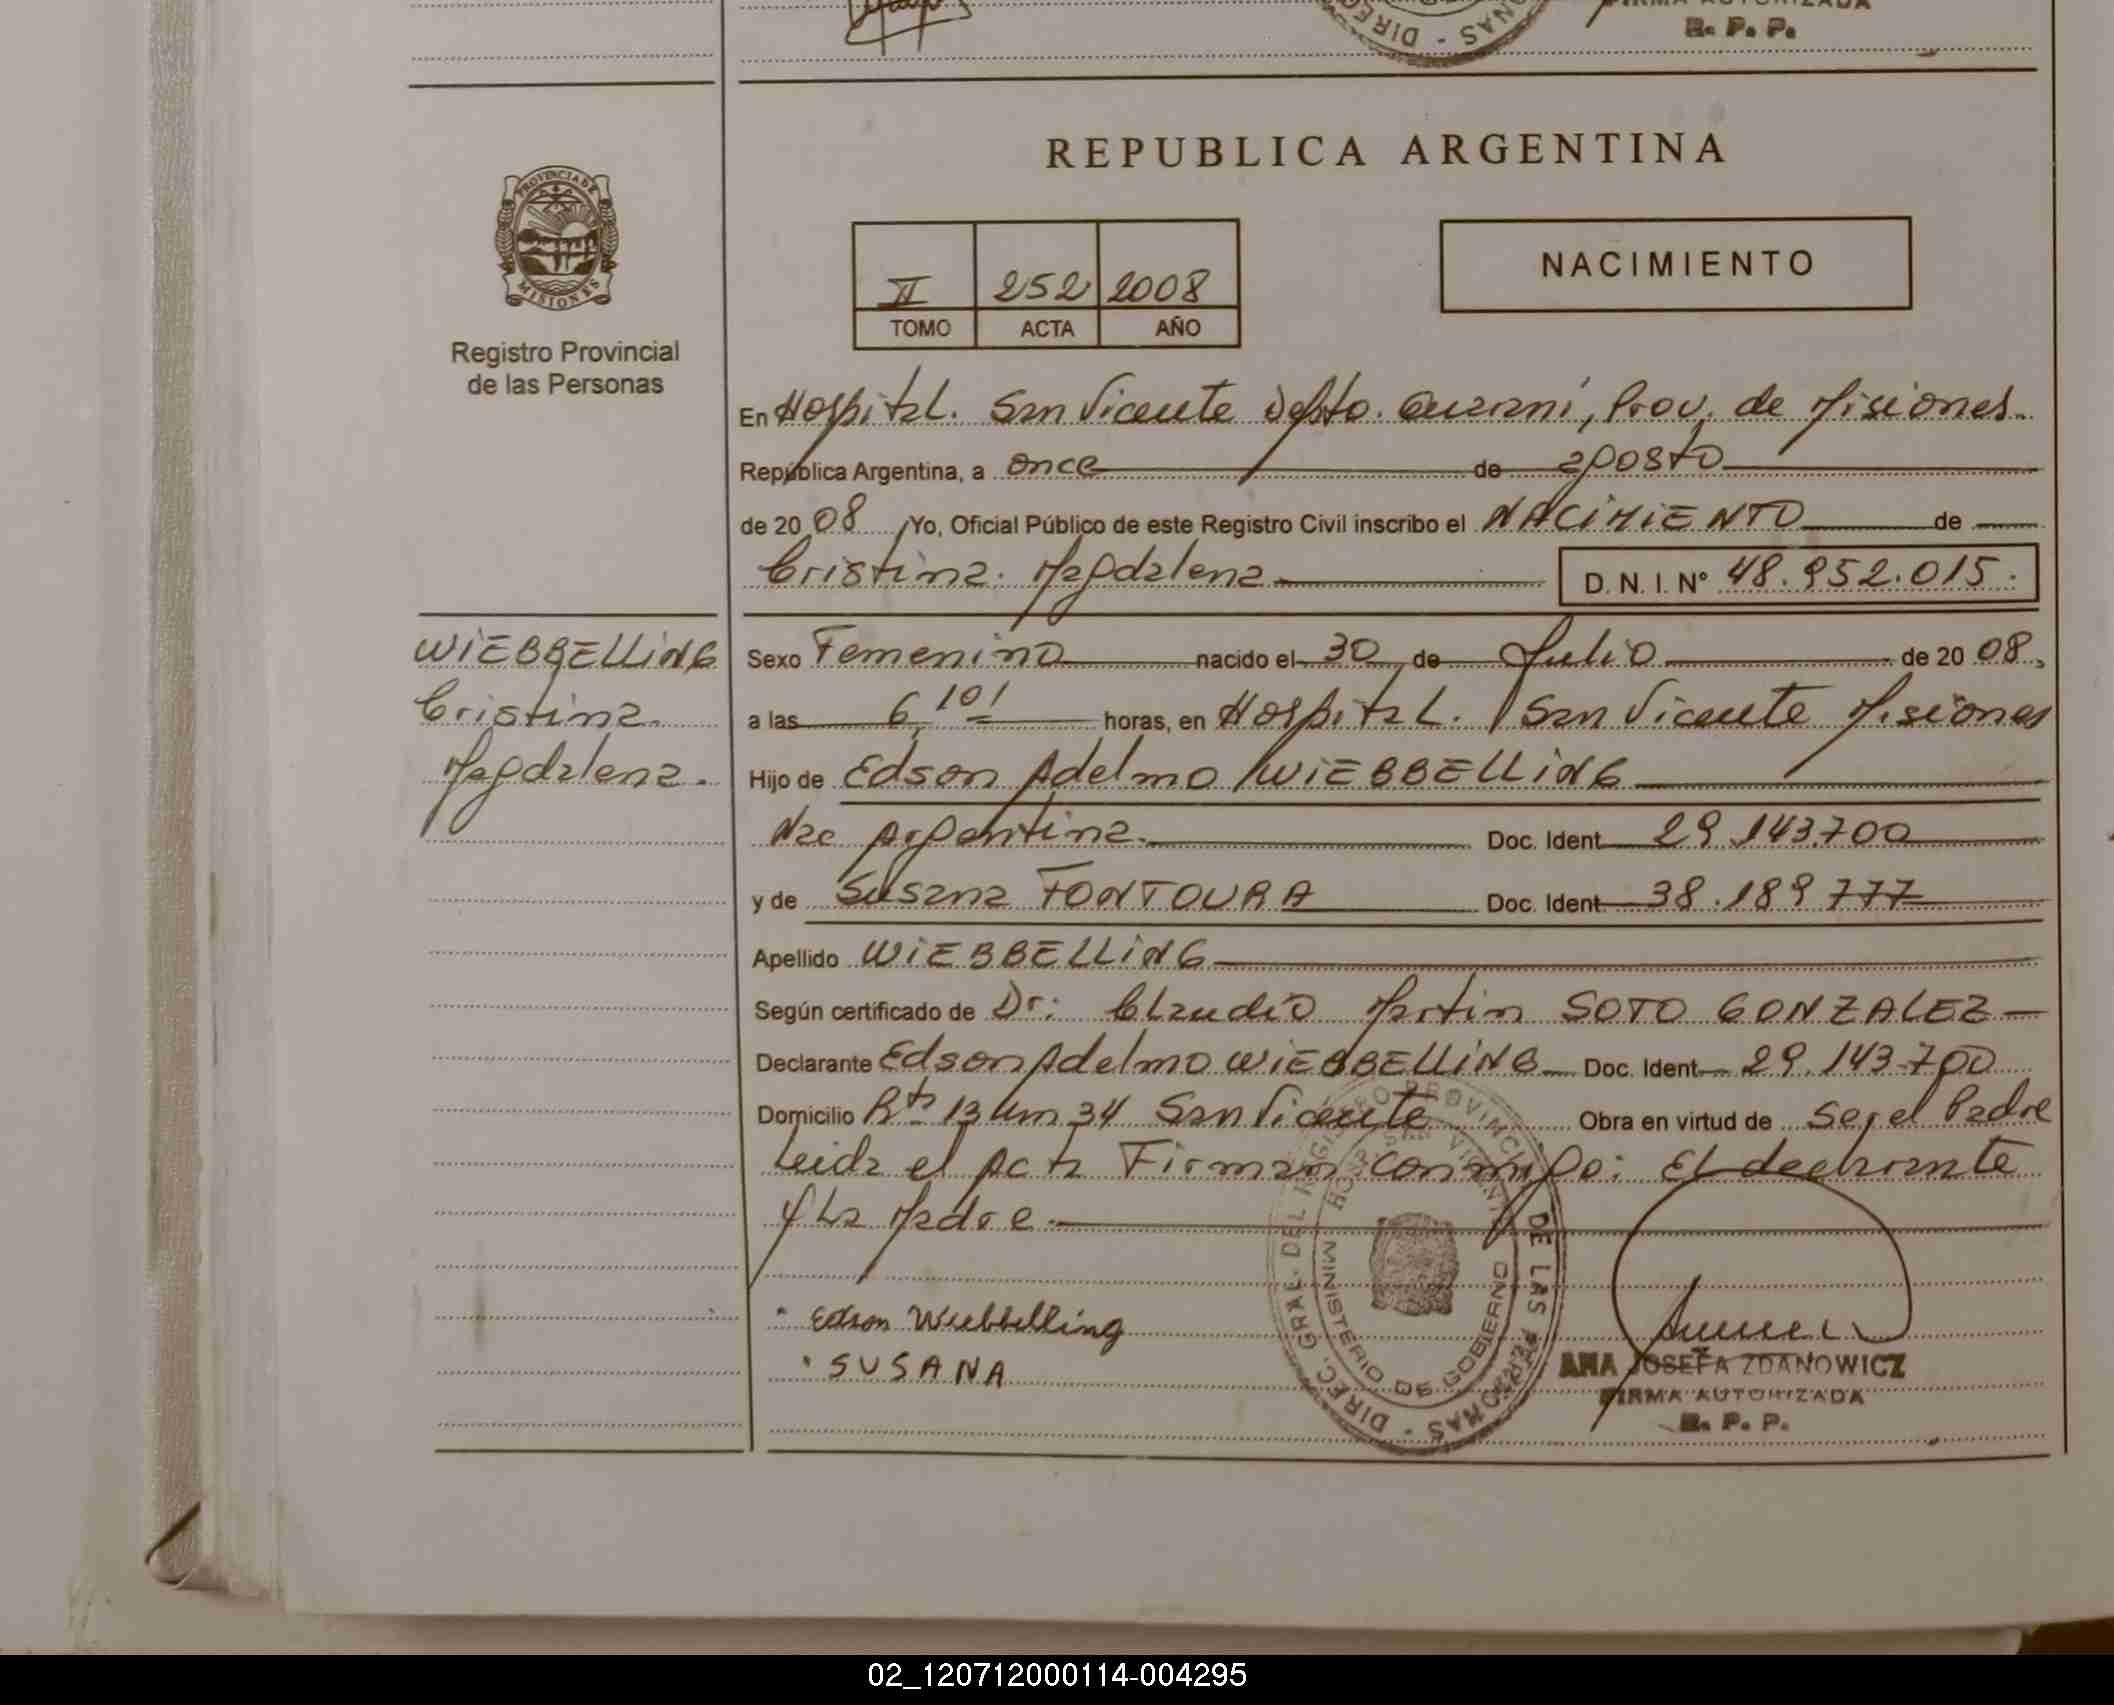 FIRMA AUTORIZADA
R. P. P.
DIREC
NAS
REPUBLICA ARGENTINA
PROVINCIA DE
MISIONES
Registro Provincial
de las Personas
II 252 2008
TOMO ACTA AÑO
NACIMIENTO
En Hospital. San Vicente Depto. Guarani, Prov. de Misiones
República Argentina, a once de agosto
de 2008 Yo, Oficial Público de este Registro Civil inscribo el NACIMIENTO de
Cristina Magdalena D. N. I. N° 48.952.015.
WIEBBELLING
Cristina
Magdalena.
Sexo Femenino nacido el 30 de Julio de 2008,
a las 6,10' horas, en Hospital. San Vicente Misiones
Hijo de Edson Adelmo WIEBBELLING
Nac Argentina. Doc. Ident 29.143.700
y de Susana FONTOURA Doc. Ident 38.189 777
Apellido WIEBBELLING
Según certificado de Dr: Claudio Martin SOTO GONZALEZ
Declarante Edson Adelmo WIEBBELLING Doc. Ident 29.143.700
Domicilio Rta 13 km 34 San Vicente Obra en virtud de Ser el Padre
Leida el Acta Firman conmigo: El declarante
y La Madre
Edson Wiebbelling
SUSANA
DIREC. GRAL. DEL REGISTRO PROVINCIAL DE LAS PERSONAS
MINISTERIO DE GOBIERNO
ANA JOSEFA ZDANOWICZ
FIRMA AUTORIZADA
R. P. P.
02_120712000114-004295